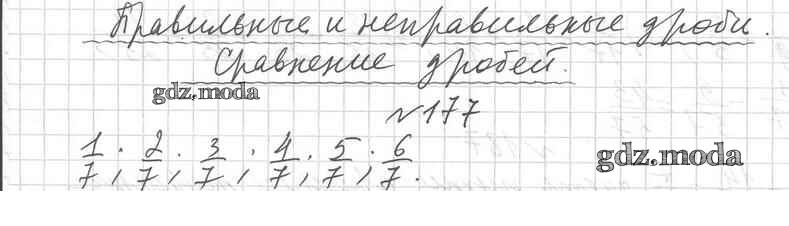 Правильные и неправильные дроби.
Сравнение дробей.
gdz.moda
№177
1/7; 2/7; 3/7; 4/7; 5/7; 6/7.
gdz.moda